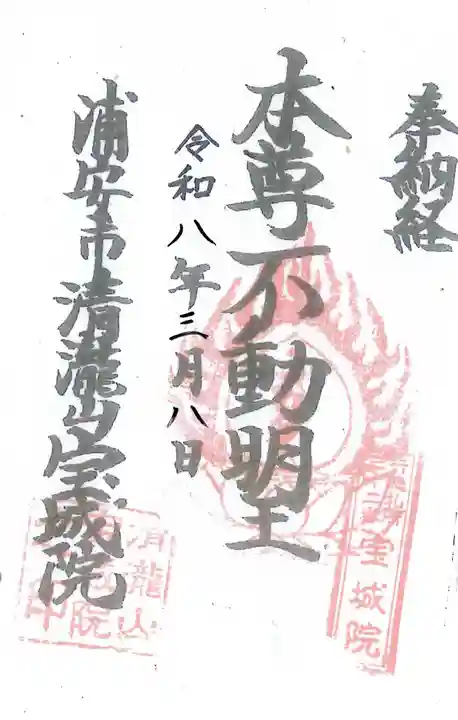 奉納経
本尊不動明王
令和八年三月八日
浦安市清瀧山宝城院
宝城院